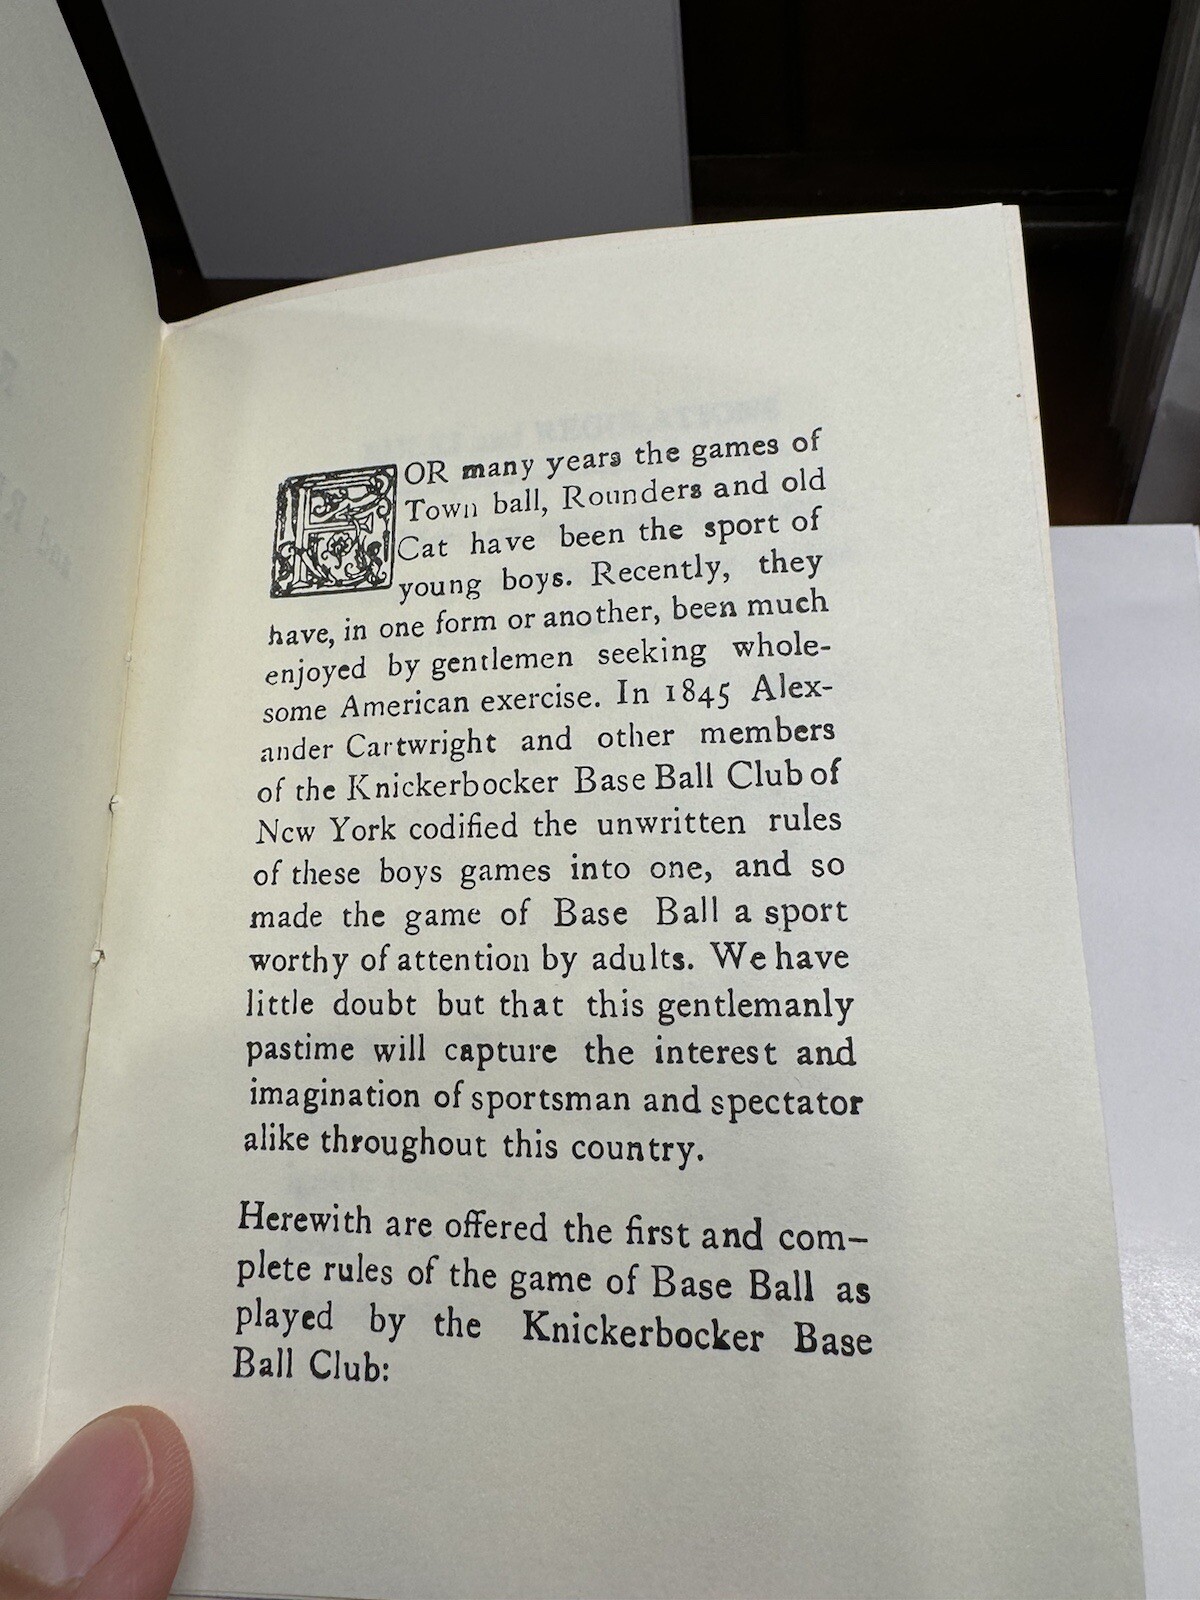 FOR many years the games of
Town ball, Rounders and old
Cat have been the sport of
young boys. Recently, they
have, in one form or another, been much
enjoyed by gentlemen seeking whole-
some American exercise. In 1845 Alex-
ander Cartwright and other members
of the Knickerbocker Base Ball Club of
New York codified the unwritten rules
of these boys games into one, and so
made the game of Base Ball a sport
worthy of attention by adults. We have
little doubt but that this gentlemanly
pastime will capture the interest and
imagination of sportsman and spectator
alike throughout this country.
Herewith are offered the first and com-
plete rules of the game of Base Ball as
played by the Knickerbocker Base
Ball Club: